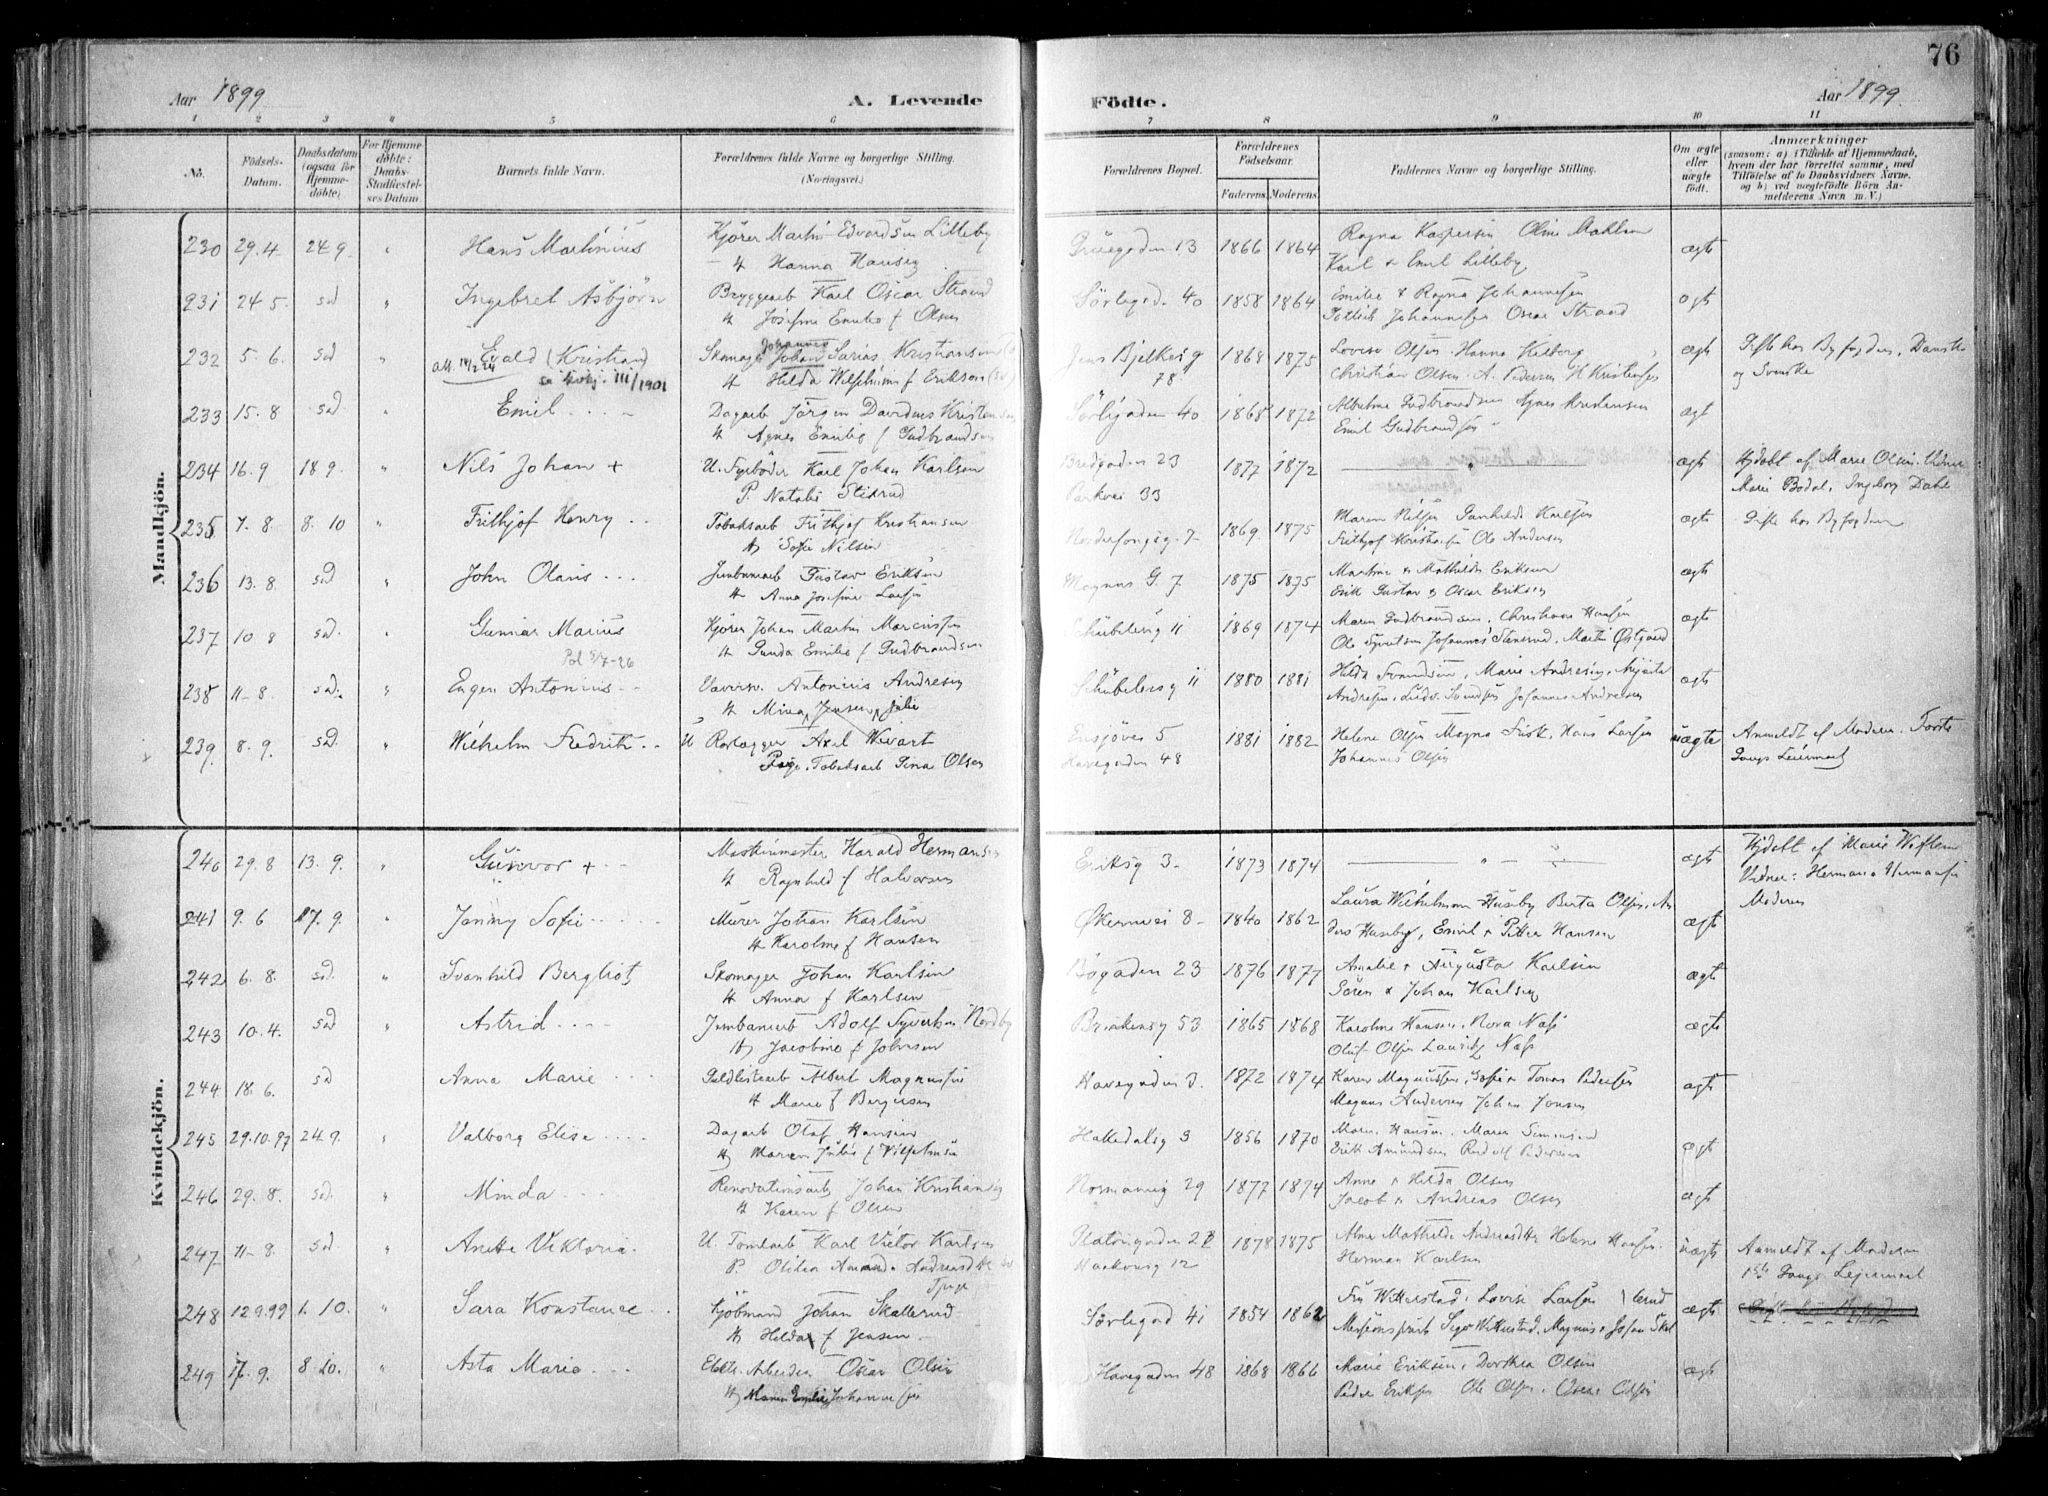 76
Aar 1899
A. Levende
Födte.
Aar 1899.
1 2 3 4 5 6 7 8 9 10 11
No.
Födsels-
Datum.
Daabsdatum
(ogsaa for
Hjemme-
döbte)
For Hjemme-
döbte:
Daabs-
Stadfæstel-
ses Datum.
Barnets fulde Navn.
Forældrenes fulde Navne og borgerlige Stilling.
(Næringsvei.)
Forældrenes Bopæl.
Forældrenes
Födselsaar.
Faderens. Moderens.
Faddernes Navne og borgerlige Stilling.
Om ægte
eller
uægte
födt.
Anmærkninger
(saasom: a) i Tilfælde af Hjemmedaab,
hvem der har forrettet samme, med
Tilföielse af to Daabsvidners Navne.
og b) ved uægtefödte Börn An-
melderens Navn m. V.)
Mandkjön.
230 29.4 24 9. " Hans Martinius
Kjörer Martin Edvardsen Lilleby
H Hanna Hansen
13 1866 1864
Ragna Kaspersen Oline
Karl & Emil Lilleby
ægte
231 24 5. sad " Ingebret Asbjörn
Bryggearb Karl Oscar Strand
H Josefine Emilie f Olsen
Sörligd. 40 1858 1864
Emilie & Ragna Johannesen
Johannesen Oscar Strand
ægte
232 5. 6. sad " Evald (Kristian)
III/1901
Johannes
Skomager Johan Sarias Kristiansen
H Hilda Wilhelmine f Erikson
Jens Bjelkesg
78 1868 1875
Lovise Olsen Hanna
Christian Olsen. A. Pedersen H Kristensen
ægte
Gifte hos Byfogden, Danske
og Svenske
233 15. 8 sad. " Emil
Dagarb Jörgen Davidens Kristensen
H Agnes Emilie f Gudbrandsen
Sörligaden 40 1865 1872
Gudbrandsen Agnes Kristensen
Emil Gudbrandsen
ægt
234 16. 9 18 9. " Nils Johan +
U. Karl Johan Karlsen
P. Natalie Stixrud
Bredgaden 23
Parkvei 33
1877 1872
"
ægte
Hjdöbt af Marie Olsen. Vidner
Marie Bodal, Ingeborg Dahl
235 7. 8. 8. 10 " Frithjof Henry
Tobaksarb Frithjof Kristiansen
H Sofie Nilsen
7 1869 1875
Maren Nilsen Karlsen
Frithjof Kristiansen Ole Andersen
ægte
Gifte hos Byfogden
236 13. 8. sad " John Olaus
Jernbanearb Gustav Eriksen
H Anna Josefine Larsen
Magnus G. 7 1875 1875
Martine & Mathilde Eriksen
Erik Gustav & Oscar Eriksen
ægte
237 10 8 sad. " Gunnar Marius
Pol 5/7-26
Kjörer Johan Martin Marcussen
H Gunda Emilie f Gudbrandsen
Schübelersg 11 1869 1874
Maren Gudbrandsen, Christiane Hansen
Ole Syvertsen Johannes Stensrud, Martin Östgaard
ægte
238 11-8. sad. " Eugen Antonius
Antonius Andresen
H Mina Jensen, Julie
Schübelersg 11 1880 1881
Hilda Svendsen, Marie Andresen,
Andresen, Ludv. Svendsen Johannes Andresen
ægte
239. 8. 9. sad. " Wilhelm Fredrik
U Axel Wivart
Pige, Tobaksarb Gina Olsen
Ensjövei 5
Havegaden 48
1881 1882
Helene Olsen Magna Hans Larsen
Johannes Olsen
uægte
Anmeldt af Moderen. Förste
Gangs Leiermaal
Kvindekjön.
240 29. 8 13. 9. " Gunvor +
Maskinmester Harald Hermansen
H Ragnhild f Halvorsen
Eriksg 3 1873 1874
"
ægte
Hjdöbt af Marie
Vidner: Herman & Hermansen
Moderen
241 9. 6 17. 9. " Jenny Sofie
Murer Johan Karlsen
H Karoline f Hansen
Økernvei 8 1840 1862
Laura Wilhelmsen Huseby Berta Olsen, An
ders Huseby, Emil & Petter Hansen
ægte
242 6. 8. sad. " Svanhild Bergliot
Skomager Johan Karlsen
H Anna f Karlsen
Bögaden 23 1876 1877
Amalie & Augusta Karlsen
Sören & Johan Karlsen
ægte
243 10. 4. sad " Astrid
Jernbanearb Adolf Syvertsen Nordby
H Jacobine f Johnsen
53 1865 1868
Karoline Hansen, Nora Næss
Oluf Olsen Lauritz Næss
ægte
244 18. 6. sad Anna Marie
Guldlistearb Albert Magnussen
H Marie f Bergersen
Havegaden 3. 1872 1874
Karen Magnussen, Sofie & Tomas Pedersen
Magnus Andersen Johan Jonsen
ægte
245 29.10.97 24 9. " Valborg Elise
Dagarb Olaf Hansen
H Maren Julie f Vilhelmsen
3 1856 1870
Maren Hansen. Maren Simonsen
Erik Amundsen Rudolf Pedersen
ægte
246 29. 8. sad. " Minda
Renovationsarb Johan Kristiansen
H Karen f Olsen
Normannsg 29 1877 1874
Anne & Hilda Olsen
Jacob & Andreas Olsen
ægte
247 11-8. sad. " Anette Viktoria
U. Tomtearb Karl Victor Karlsen
P. Otilia Amanda Andreasdtr
Platougaden
12 1878 1875
Alma Mathilde Andreasdtr Helene Hansen.
Herman Karlsen
uægte
Anmeldt af Moderen
1ste Gangs Leiermaal
248 12.9.99 1. 10. " Sara Konstance
Kjöbmand Johan Skallerud
H Hilda f Jensen
Sörligad 41 1854 1862
Fru Witterstad, Lovise Larsen
Missionsprest Witterstad, Magnus & Johan Skal
lerud
ægte
249 17. 9. 8. 10. " Asta Marie
Elektr. Arbeider Oscar Olsen
H Maren Emilie Johannesen
Havegaden 48 1868 1866
Marie Eriksen, Dorthea Olsen
Peder Eriksen Ole Olsen, Oscar Olsen
ægte